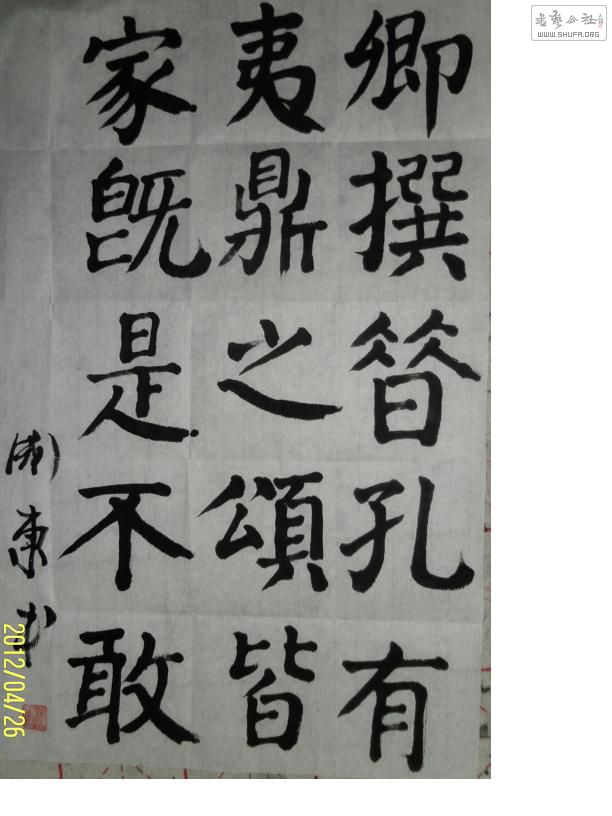 卿撰晉孔有
夷鼎之頌皆
家旣是不敢
2012/04/26
書藝公社
WWW.SHUFA.ORG